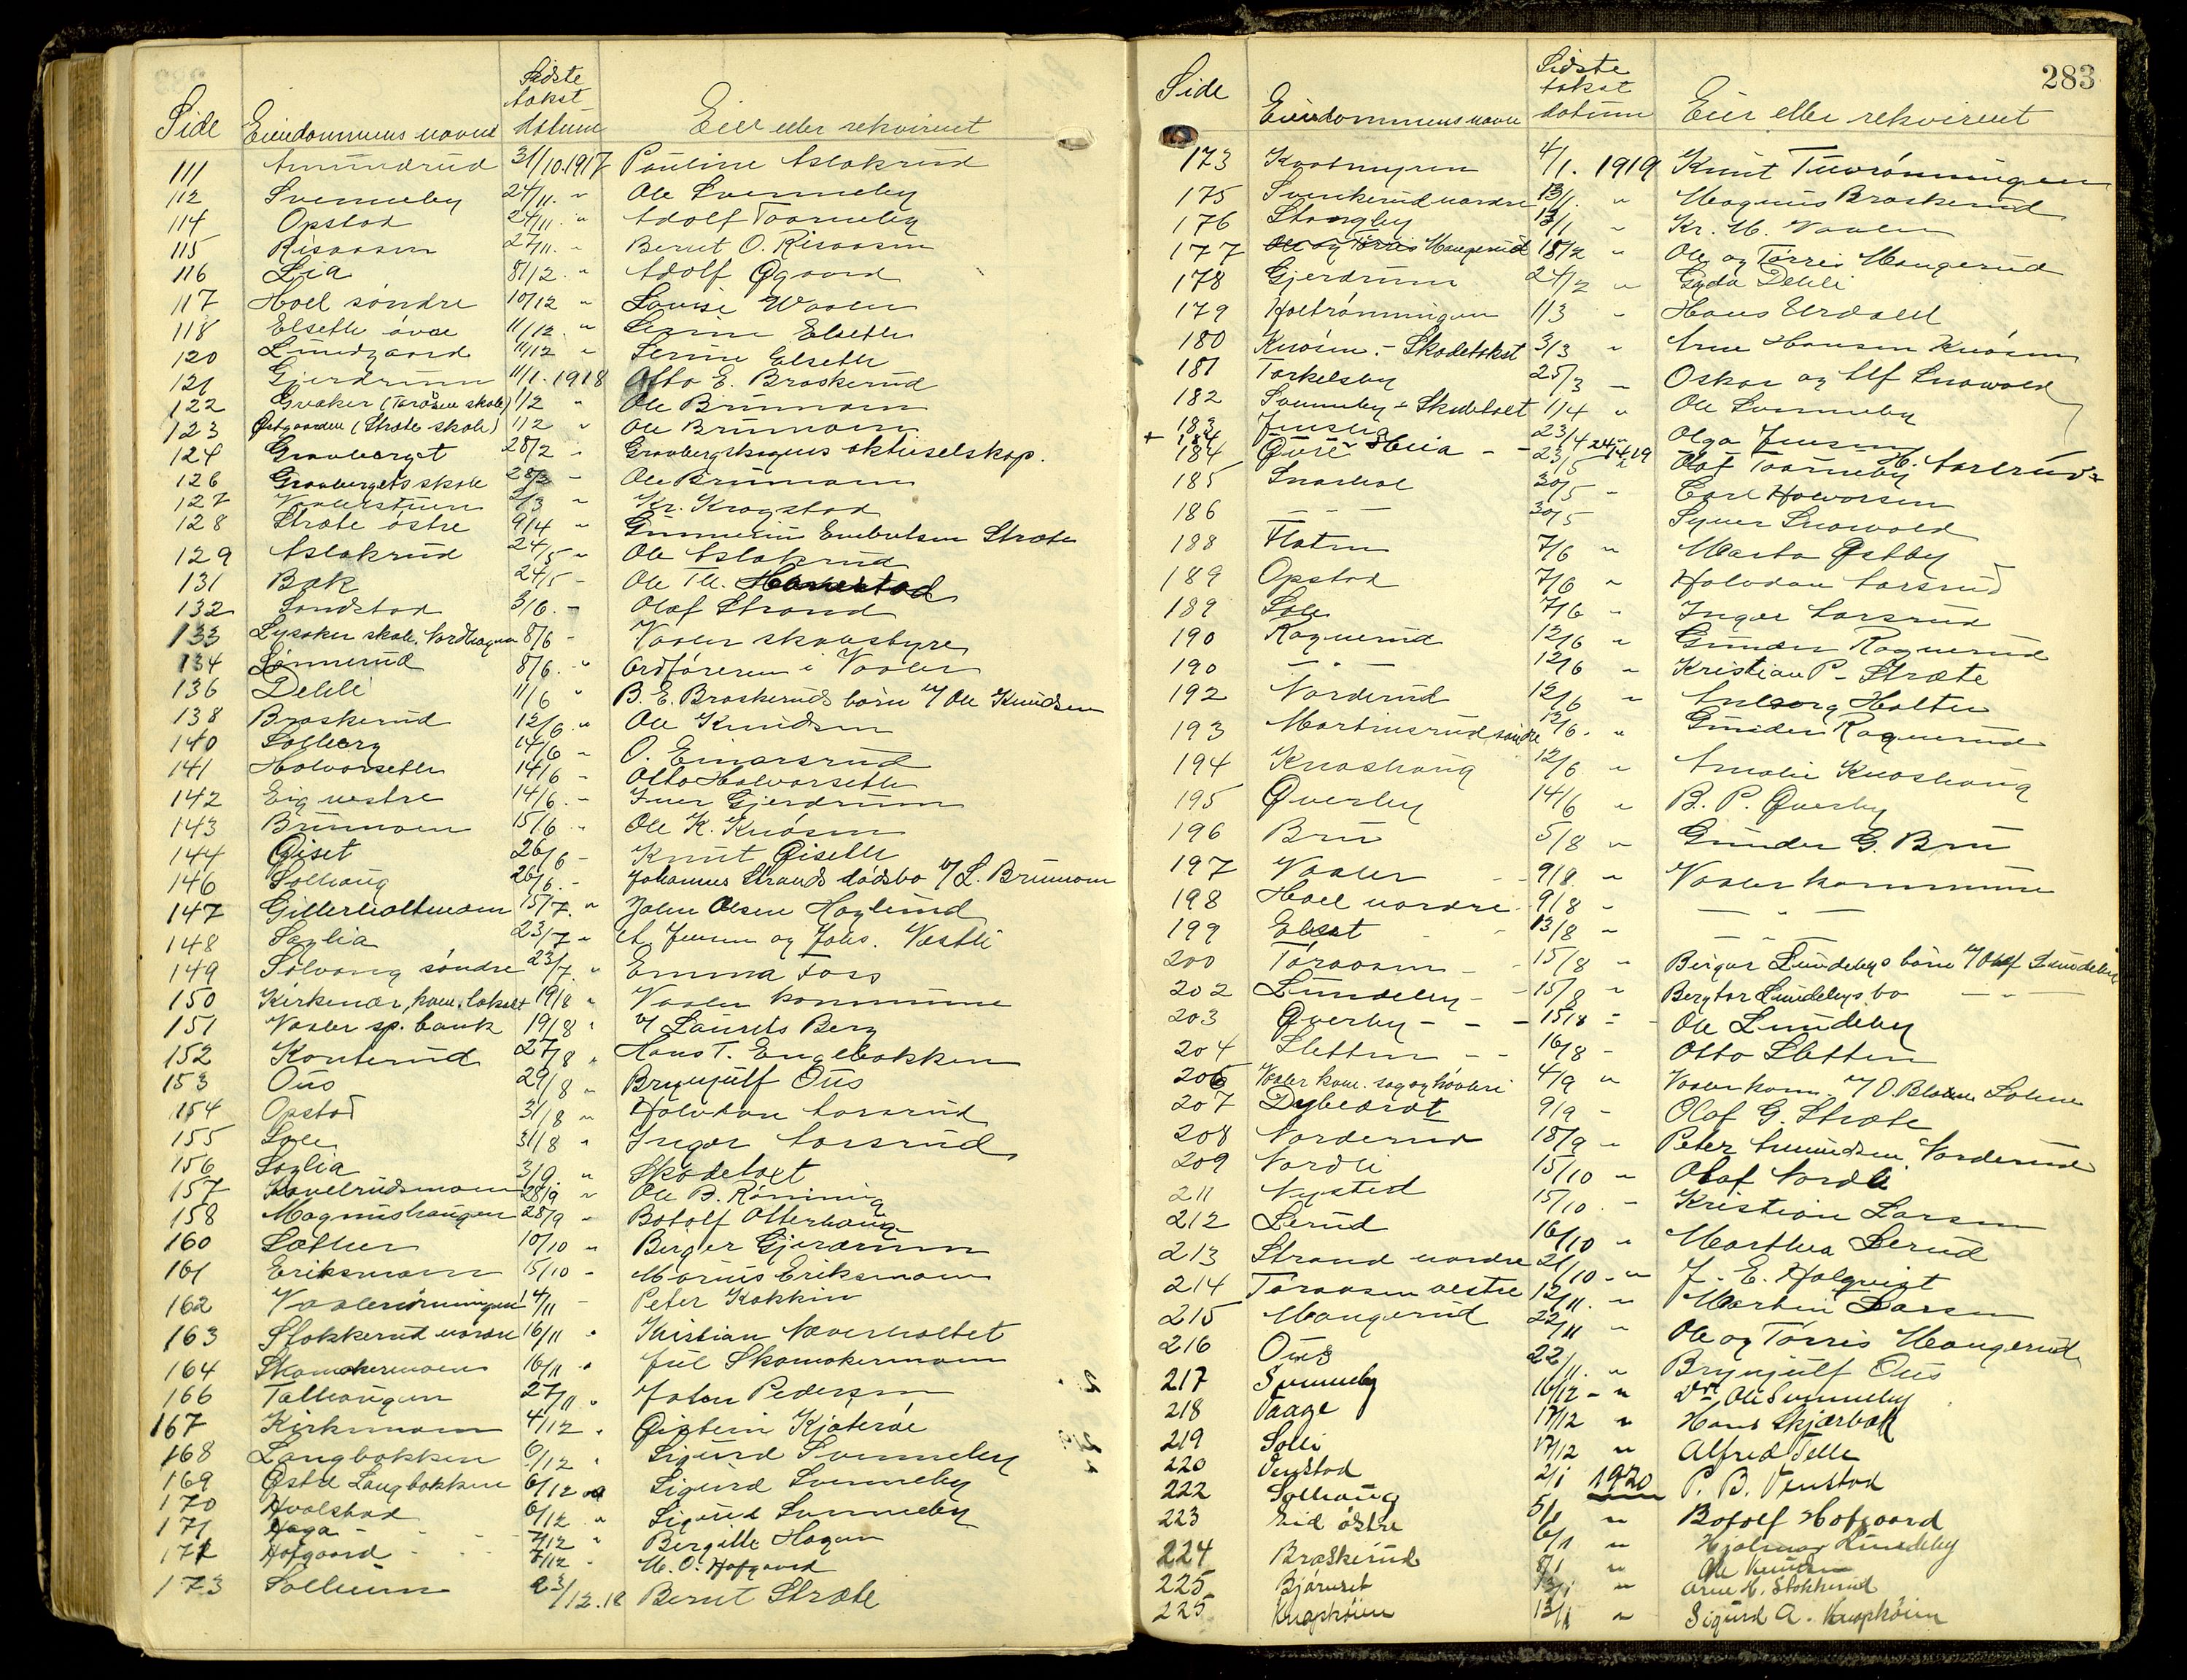 Side Eiendommens navne Sidste takst datum Eier eller rekvirent
111 Amundrud 31/10.1917 Pauline Aslakrud
112 Svenneby 24/11. " Ole Svenneby
114 Opstad 24/11. " Adolf Taarneby
115 Risaasen 27/11. " Bernt O. Risaasen
116 Lia 8/12. " Adolf Øgaard
117 Hoel søndre 10/12 " Lovise Waaler
118 Elseth øvre 11/12. " Serine Elseth
120 Lundgaard 11/12 " Serine Elseth
121 Gjerdrum 11/1. 1918 Otto E. Braskerud
122 Gvaker (Taraasen skole) 1/2 " Ole Brumoen
123 Østgaarden (Stræte skole) 1/2 " Ole Brumoen
124 Gravberget 28/2 " Gravbergskogens aktieselskap.
126 Gravbergets skole 28/2 " Ole Brumoen
127 Vaalerstuen 2/3 " Kr. Krogstad
128 Stræte østre 9/4 " Embretsen Stræte
129 Aslakrud 24/5 " Ole Aslakrud
131 Bak 24/5 - Ole Th.
132 Sandstad 3/6. - Olaf Strand
133 Lysaker skole. Nordhagen 8/6 - Vaaler skolestyre
134 Lønnerud 8/6. " Ordføreren i Vaaler
136 Dehli 11/6 " B. E. Braskeruds børn v/ Ole Knudsen
138 Braskerud 12/6. " Ole Knudsen
140 Solberg 14/6 " O. Einarsrud
141 Halvorseth 14/6 - Otto Halvorseth
142 Eig vestre 14/6. - Iver Gjerdrum
143 Brumoen 15/6. " Ole K. Knøsen
144 Øiset 26/6 - Knut Øiseth
146 Solhaug 26/6. - Johannes Strands dødsbo v/ L. Brumoen
147 Gitterholtmoen 15/7. " Johan Olsen Haglund
148 Saglia 23/7 " A. Jensen og Johs. Vestli
149 Solvang søndre 23/7. " Emma Foss
150 Kirkenær, kom. lokale 19/8 " Vaaler kommune
151 Vaaler sp. bank 19/8 " v/ Laurits Berg
152 Konterud 27/8 " Hans T. Engebakken
153 Ous 29/8 " Brynjulf Ous
154 Opstad 31/8 " Halvdan Aasrud
155 Sole 31/8 " Ingar Aasrud
156 Saglia 3/9. " Skadetakst
157 28/9 " Ole B. Rønning
158 Magnushaugen 28/9 " Botolf Otterhaug
160 Sæther 10/10 " Birger Gjerdrum
161 Eriksmoen 15/10 - Marius Eriksmoen
162 Vaalerrønningen 14/11 - Peter Kokkin
163 Stokkerud nordre 16/11 " Kristian Næverholtet
164 Skomakermoen 16/11 " Jul Skomakermoen
166 Talhaugen 27/11 " Johan Pedersen
167 Kirkemoen 4/12 " Øistein Kjøterøe
168 Langbakken 6/12 " Sigurd Svenneby
169 Østre Langbakken 6/12 " Sigurd Svenneby
170 Hvalstad 6/12 " Sigurd Svenneby
171 Haga - - - 7/12 " Bergitte Hagen
172 Hofgaard - - - 7/12 - M. O. Hofgaard
173 Solheim 23/12.18 Bernt Stræte
283
Side Eiendommens navne Sidste takst datum Eier eller rekvirent
173 Kvatmyren 4/1. 1919 Knut Tuvrønningen
175 Svenkerud nordre 13/1. " Magnus Braskerud
176 Stangby 13/1 " Kr. M. Vaaler
177 Ole og Tørris Haugerud 18/2 " Ole og Tørris Haugerud
178 Gjerdrum 24/2 " Gyda Dehli
179 Holtrønningen 1/3 - Hans Urdahl
180 Knøsen. - Skadetakst 3/3 " Arne Hansen Knøsen
181 Torkelsby 25/3 - Oskar og Alf Snowold
182 Svenneby - Skadetakst 1/4 " Ole Svenneby
183 Jenslia 23/4 Olga Jensen
+ 184 Øvre Heia - - 24/4 19 H. Aaserud
184 23/5 Olaf Taarneby
185 Snarhol 30/5 - Carl Halvorsen
186 — — 30/5 Syver Snowold
188 Flaten 7/6 " Marta Østby
189 Opstad 7/6 " Halvdan Aasrud
189 Sole 7/6 " Ingar Aasrud
190 Ragnerud 12/6 " Gunder Ragnerud
190 — " — 12/6 " Kristian P. Stræte
192 Norderud 12/6 " Anborg Holten
193 Martinsrud søndre 12/6. " Gunder Ragnerud
194 Knashaug 12/6 " Amalie Knashaug
195 Øverby 14/6 " B. P. Øverby
196 Bru 5/8 " Gunder G. Bru
197 Vaaler 9/8 " Vaaler kommune
198 Hoel nordre 9/8 " — " —
199 Elset 13/8 " — " —
200 Taraasen - 15/8 " Birger Lundebys børn v/ Olaf Lundeby
202 Lundeby - 15/8 " Bergtor Lundebys bo — " —
203 Øverby - - - 15/8 - Ole Lundeby
204 Sletten - - 16/8 - Otto Sletten
206 Vaaler kom. sag og høvleri 4/9 " Vaaler kom. v/
207 9/9 - Olaf G. Stræte
208 Norderud 18/9 " Peter Amundsen Norderud
209 Nordli 15/10 " Olaf Nordli
211 Nysted 15/10 - Kristian Larsen
212 Lerud 16/10 " Marthea Lerud
213 Strand nordre 21/10 - " J. E. Holqvist
214 Taraasen vestre 12/11. " Martin Larsen
215 Haugerud 22/11 " Ole og Tørris Haugerud
216 Ous 22/11. " Brynjulf Ous
217 Svenneby 16/12 - " Ole Svenneby
218 Vaage 17/12 " Hans Skjærbæk
219 Solli 17/12 " Alfred Telle
220 Venstad 2/1 1920 P. B. Venstad
222 Solhaug 5/1 " Botolf Hofgaard
223 Eid østre 6/1 " Hjalmar Lundeby
224 Braskerud 8/1 " Ole Knutsen
225 Bjørnset 13/1 " Arne H. Stokkerud
225 Knaphøien 13/1 " Sigurd A. Knaphøien